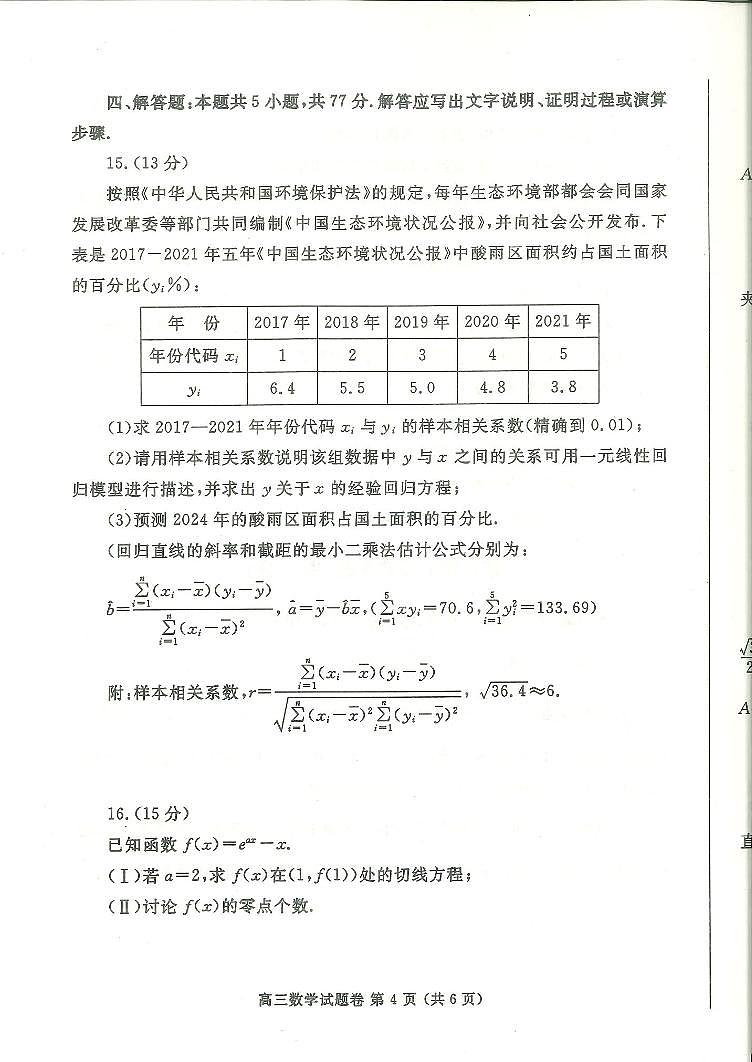 四、解答题:本题共5小题,共77分.解答应写出文字说明、证明过程或演算
步骤.
15.(13分)
按照《中华人民共和国环境保护法》的规定,每年生态环境部都会会同国家
发展改革委等部门共同编制《中国生态环境状况公报》,并向社会公开发布.下
表是2017-2021年五年《中国生态环境状况公报》中酸雨区面积约占国土面积
的百分比(yᵢ%):
年 份 2017年 2018年 2019年 2020年 2021年
年份代码 xᵢ 1 2 3 4 5
yᵢ 6.4 5.5 5.0 4.8 3.8
(1)求2017—2021年年份代码 xᵢ 与 yᵢ 的样本相关系数(精确到0.01);
(2)请用样本相关系数说明该组数据中 y 与 x 之间的关系可用一元线性回
归模型进行描述,并求出 y 关于 x 的经验回归方程;
(3)预测2024年的酸雨区面积占国土面积的百分比.
(回归直线的斜率和截距的最小二乘法估计公式分别为:
b̂=∑ᵢ₌₁ⁿ(xᵢ-x̄)(yᵢ-ȳ)/∑ᵢ₌₁ⁿ(xᵢ-x̄)²,â=ȳ-b̂x̄,(∑ᵢ₌₁⁵xyᵢ=70.6,∑ᵢ₌₁⁵yᵢ²=133.69)
附:样本相关系数,r=∑ᵢ₌₁ⁿ(xᵢ-x̄)(yᵢ-ȳ)/√(∑ᵢ₌₁ⁿ(xᵢ-x̄)²∑ᵢ₌₁ⁿ(yᵢ-ȳ)²),√36.4≈6.
16.(15分)
已知函数 f(x)=eᵃˣ-x.
(Ⅰ)若 a=2,求 f(x)在(1,f(1))处的切线方程;
(Ⅱ)讨论 f(x)的零点个数.
高三数学试题卷 第4页(共6页)
A
夹
A
直